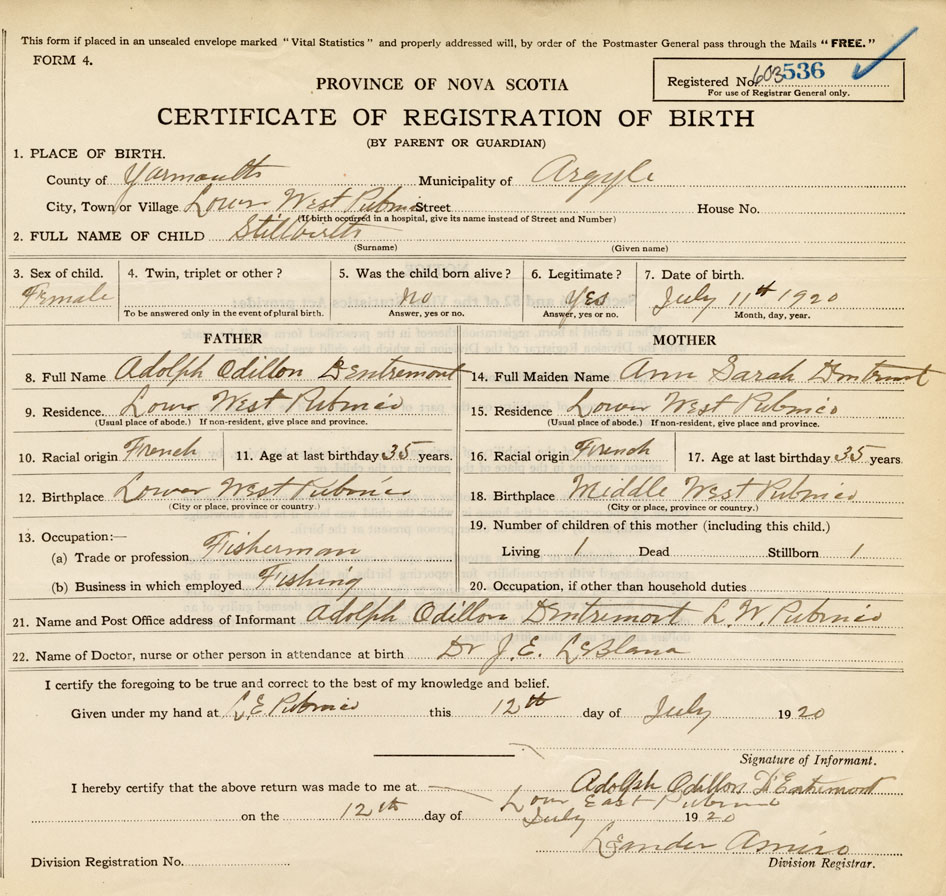 This form if placed in an unsealed envelope marked "Vital Statistics" and properly addressed will, by order of the Postmaster General pass through the Mails "FREE."
FORM 4.
Registered No. 603536
For use of Registrar General only.
PROVINCE OF NOVA SCOTIA
CERTIFICATE OF REGISTRATION OF BIRTH
(BY PARENT OR GUARDIAN)
1. PLACE OF BIRTH.
County of Yarmouth Municipality of Argyle
City, Town or Village Lower West Pubnico Street House No.
(If birth occurred in a hospital, give its name instead of Street and Number)
2. FULL NAME OF CHILD Stillbirth
(Surname) (Given name)
3. Sex of child. 4. Twin, triplet or other? 5. Was the child born alive? 6. Legitimate? 7. Date of birth.
Female No Yes July 11th 1920
To be answered only in the event of plural birth. Answer, yes or no. Answer, yes or no. Month, day, year.
FATHER MOTHER
8. Full Name Adolph Odillon Dentremont 14. Full Maiden Name Ann Sarah Dentremont
9. Residence. Lower West Pubnico 15. Residence Lower West Pubnico
(Usual place of abode.) If non-resident, give place and province. (Usual place of abode.) If non-resident, give place and province.
10. Racial origin French 11. Age at last birthday 35 years. 16. Racial origin French 17. Age at last birthday 35 years.
12. Birthplace Lower West Pubnico 18. Birthplace Middle West Pubnico
(City or place, province or country.) (City or place, province or country.)
13. Occupation:— 19. Number of children of this mother (including this child.)
(a) Trade or profession Fisherman Living 1 Dead Stillborn 1
(b) Business in which employed Fishing 20. Occupation, if other than household duties
21. Name and Post Office address of Informant Adolph Odillon Dentremont L. W. Pubnico
22. Name of Doctor, nurse or other person in attendance at birth Dr J. E. LeBlanc
I certify the foregoing to be true and correct to the best of my knowledge and belief.
Given under my hand at L. E. Pubnico this 12th day of July 1920
Signature of Informant.
Adolph Odillon D'Entremont
I hereby certify that the above return was made to me at Lower East Pubnico
on the 12th day of July 1920
Leander Amiro
Division Registration No. Division Registrar.